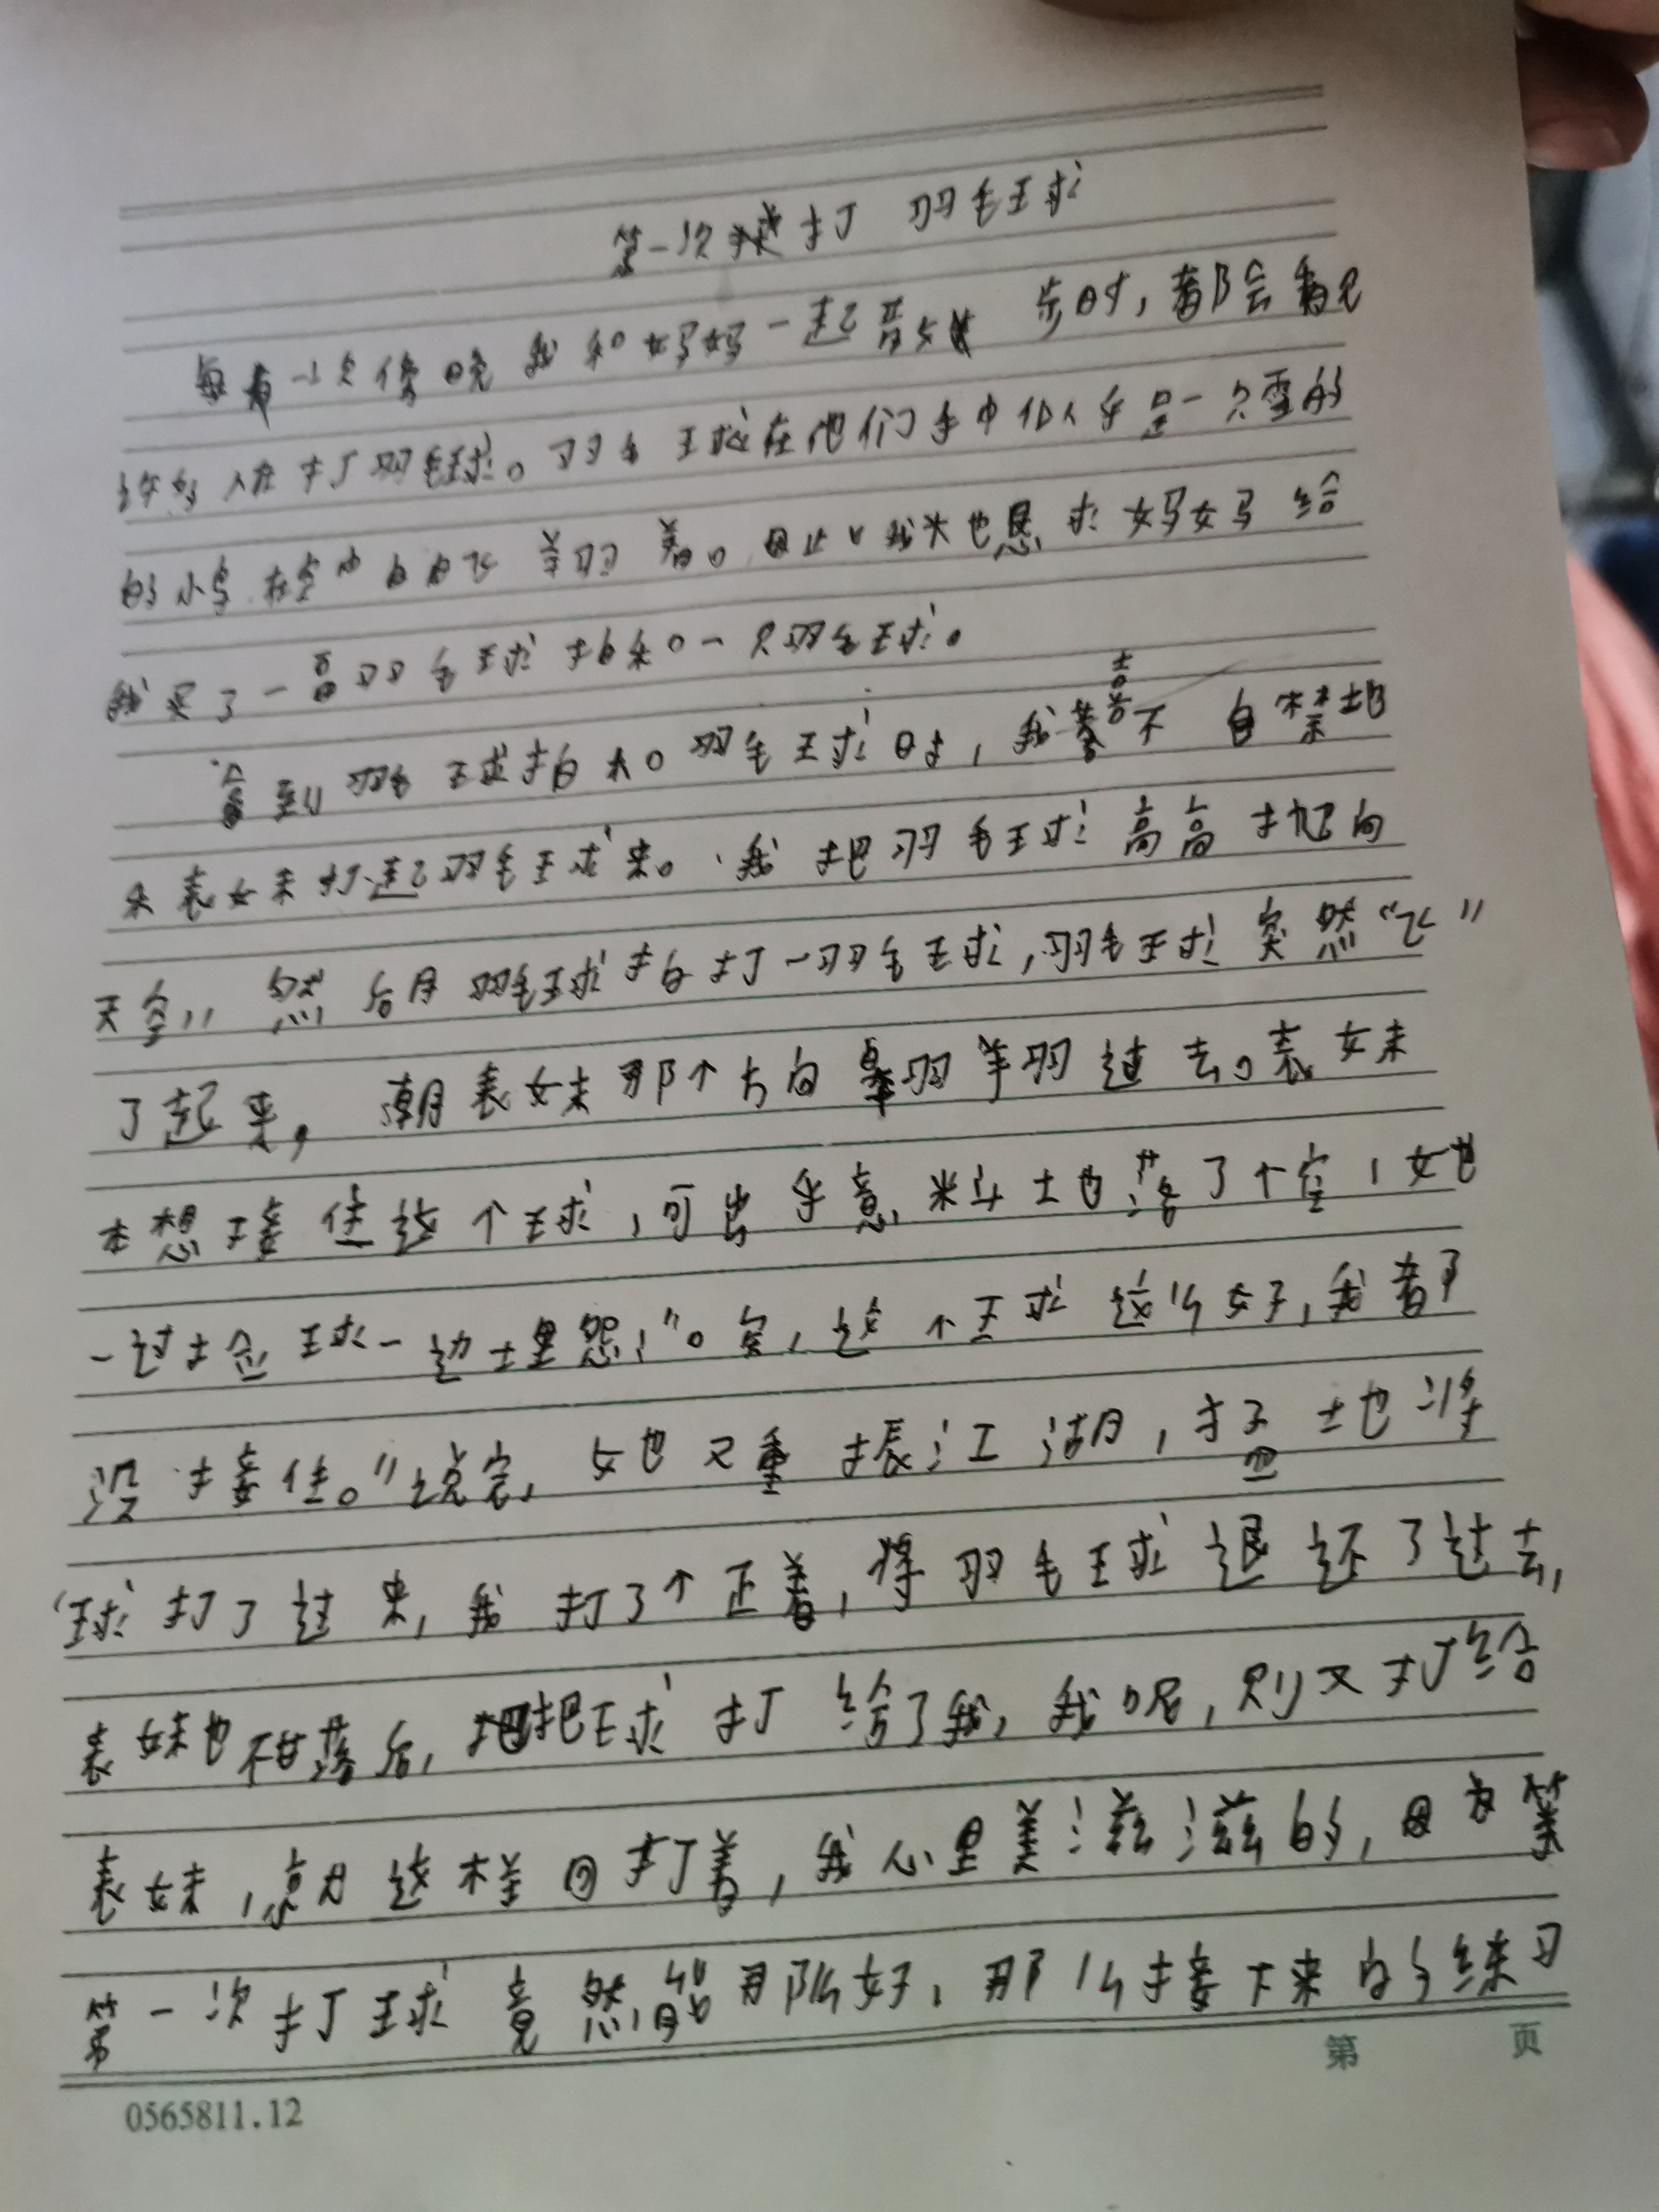 第一次打羽毛球
每有一次傍晚我和妈妈一起散步时,都会看见
许多人在打羽毛球。羽毛球在他们手中似乎是一只雪白的
的小鸟在空中自由飞翔着。因此我也恳求妈妈给
我买了一副羽毛球拍和一只羽毛球。
拿到羽毛球拍和羽毛球时,我喜不自禁地
和表妹打起羽毛球来。我把羽毛球高高抛向
天空,然后用羽毛球拍打一羽毛球,羽毛球突然“飞”
了起来,朝表妹那个方向翱翔过去。表妹
本想接住这个球,可出乎意料地落了个空,她
一边捡球一边埋怨:“。哎,这个球这么好,我都
没接住。”说完,她又重振江湖,猛地将
球打了过来,我打了个正着,将羽毛球退还了过去,
表妹也不甘落后,把球打给了我,我呢,则又打给
表妹,就这样回打着,我心里美滋滋的,因为第
第一次打球竟然能那么好,那么接下来的练习
第 页
0565811.12